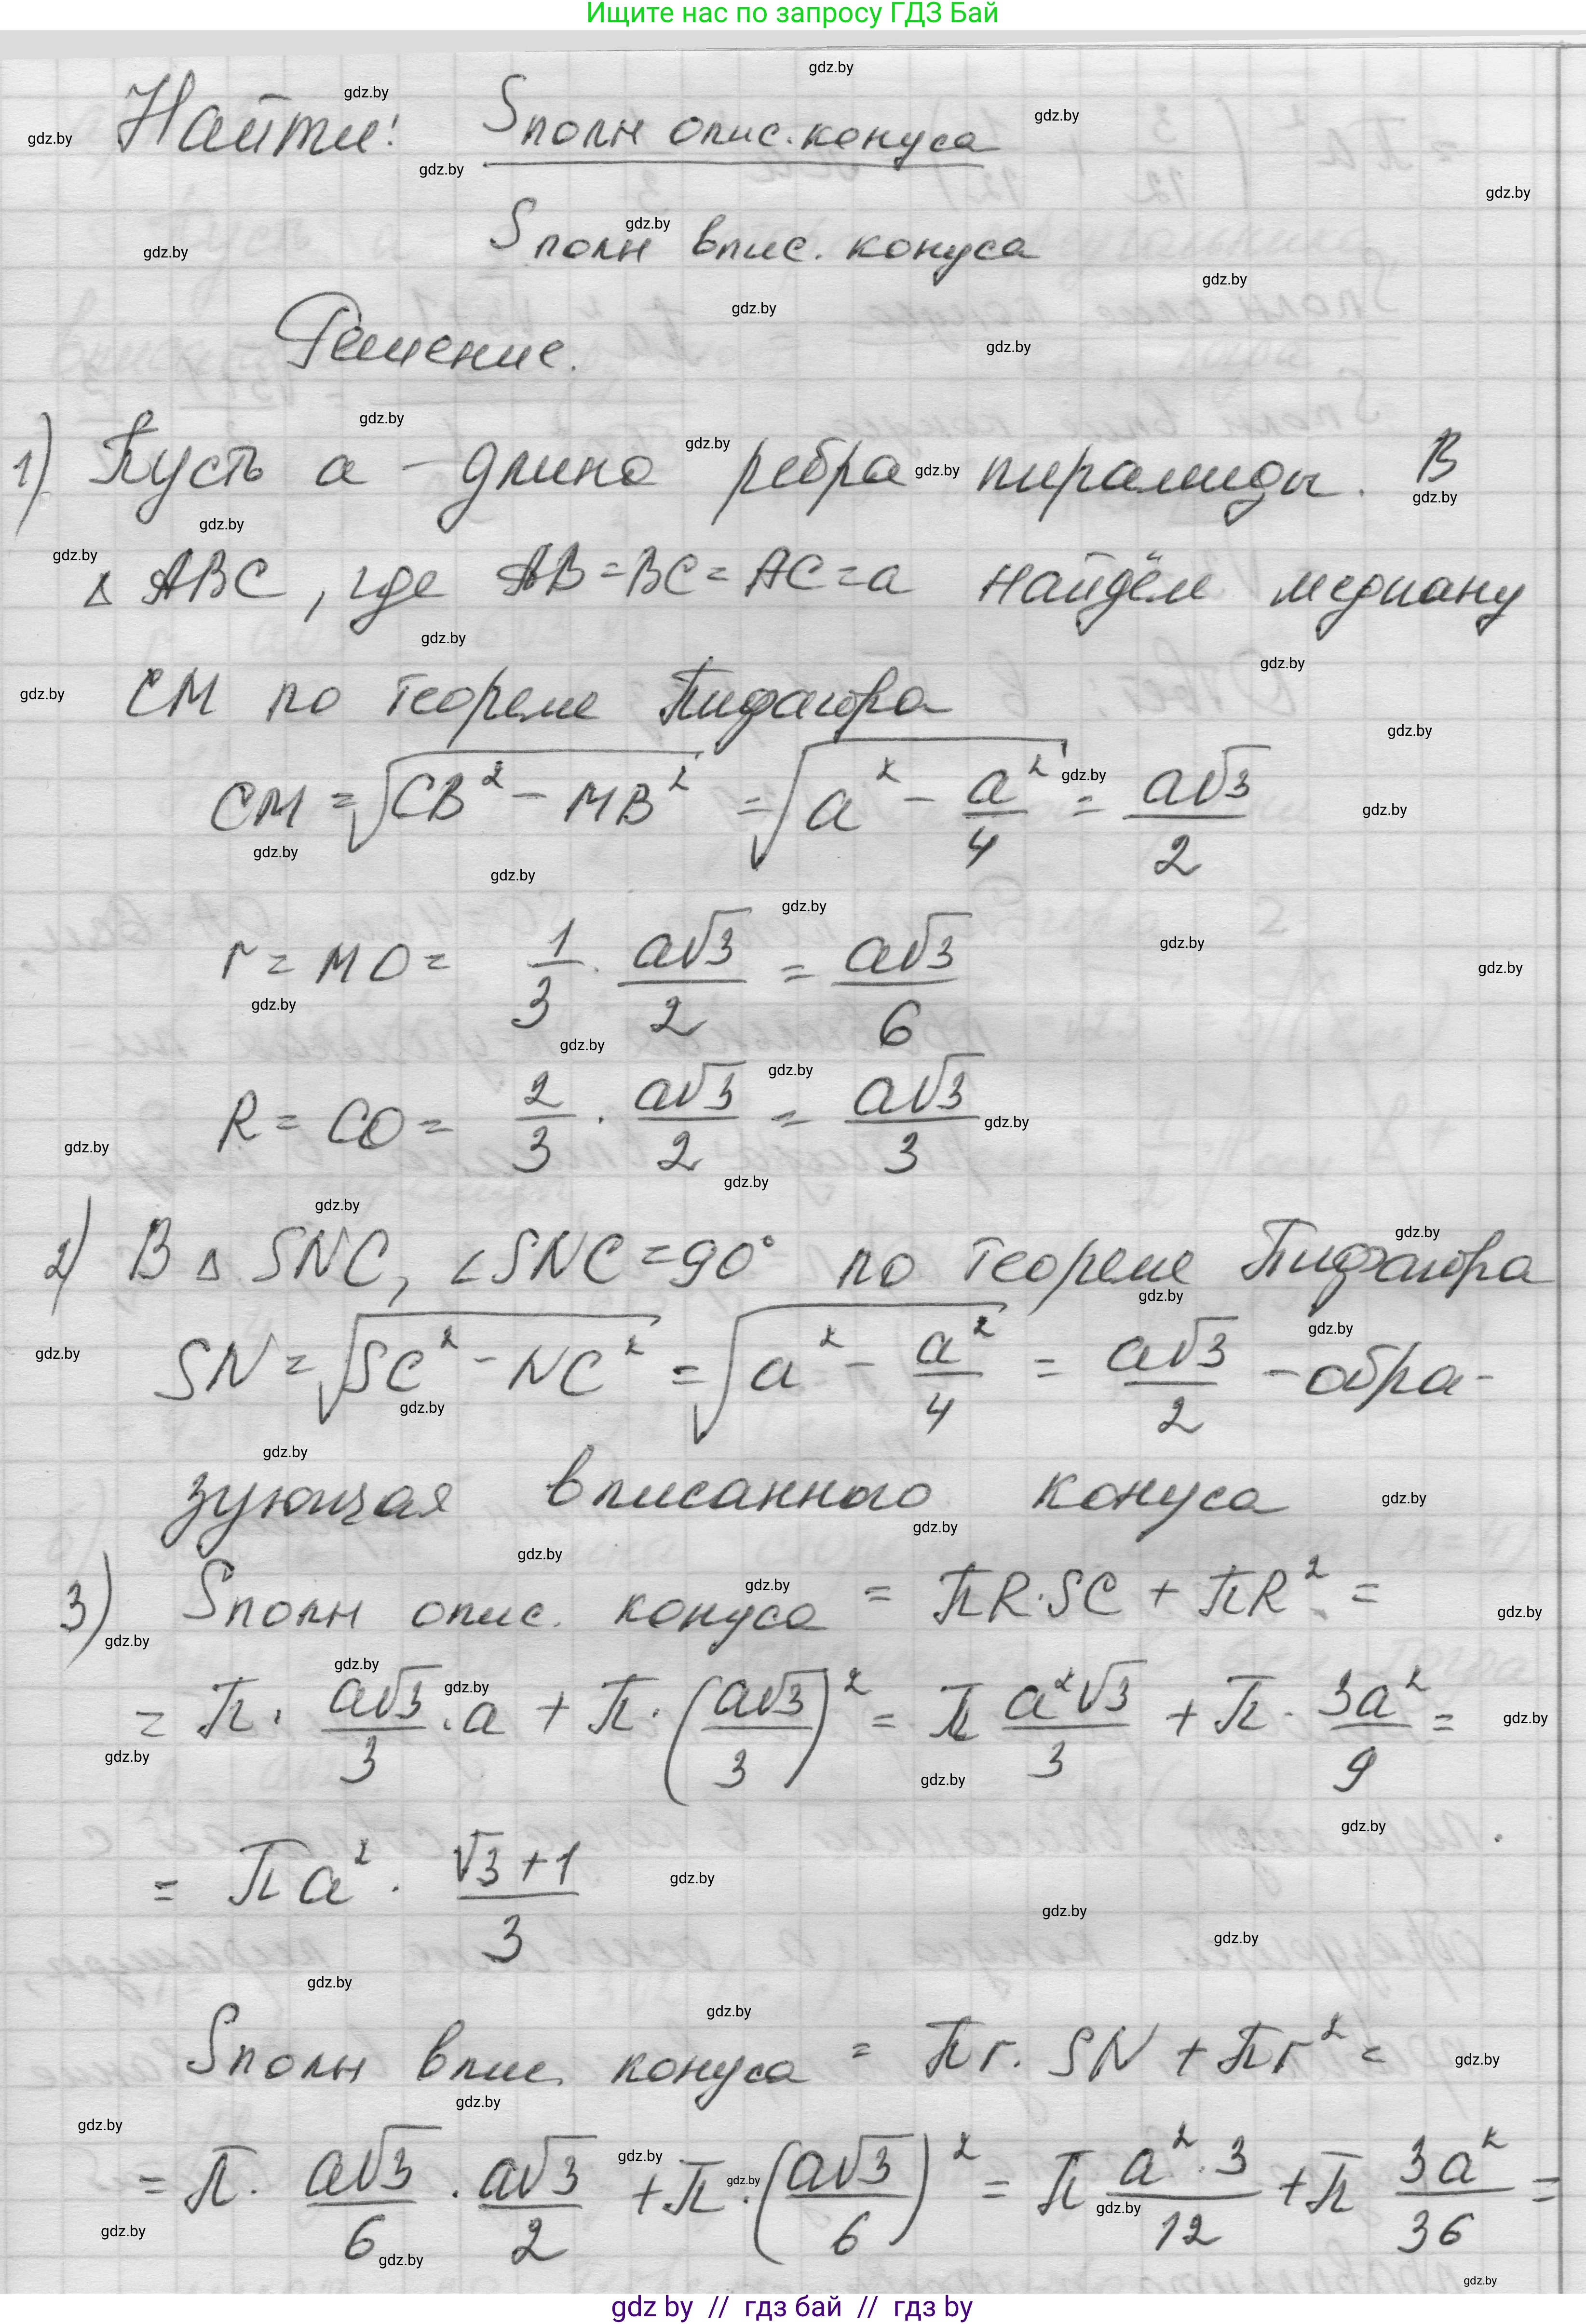 Ищите нас по запросу ГДЗ Бай
Найти: Sполн опис. конуса
Sполн впис. конуса
Решение.
1) Пусть a – длина ребра пирамиды. В
△ ABC, где AB = BC = AC = a найдём медиану
CM по теореме Пифагора
CM = √(CB² - MB²) = √(a² - a²/4) = a√3/2
r = MO = 1/3 · a√3/2 = a√3/6
R = CO = 2/3 · a√3/2 = a√3/3
2) В △ SNC, ∠SNC = 90° по теореме Пифагора
SN = √(SC² - NC²) = √(a² - a²/4) = a√3/2 - обра-
зующая вписанного конуса
3) Sполн опис. конуса = πR·SC + πR² =
= π · a√3/3 · a + π · (a√3/3)² = π a²√3/3 + π · 3a²/9 =
= πa² · (√3+1)/3
Sполн впис. конуса = πr · SN + πr² =
= π · a√3/6 · a√3/2 + π · (a√3/6)² = π a²·3/12 + π 3a²/36 =
gdz by // гдз бай // гдз by